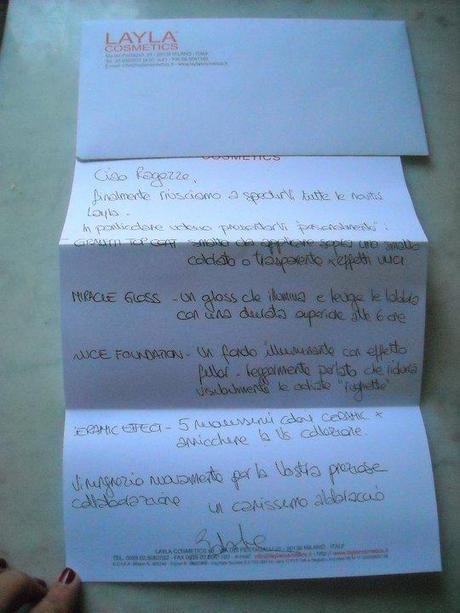 LAYLA
COSMETICS
COSMETICS
Ciao Ragazze,
finalmente riusciamo a spedirvi tutte le novità
Layla.
In particolare volevo presentarvi "personalmente":
TOP COAT smalto da applicare sopra uno smalto
colorato o trasparente x effetti unici
MIRACLE GLOSS - un gloss che illumina e leviga le labbra
con una durata superiore alle 6 ore
FOUNDATION - un fondo illuminante con effetto
filler - leggermente perlato che riduce
visibilmente le odiate "rughette"
CERAMIC EFFECT - 5 nuovissimi colori CERAMIC x
arricchire la vs collezione.
Vi ringrazio nuovamente per la vostra preziosa
collaborazione un carissimo abbraccio
LAYLA COSMETICS 20139 MILANO - ITALY